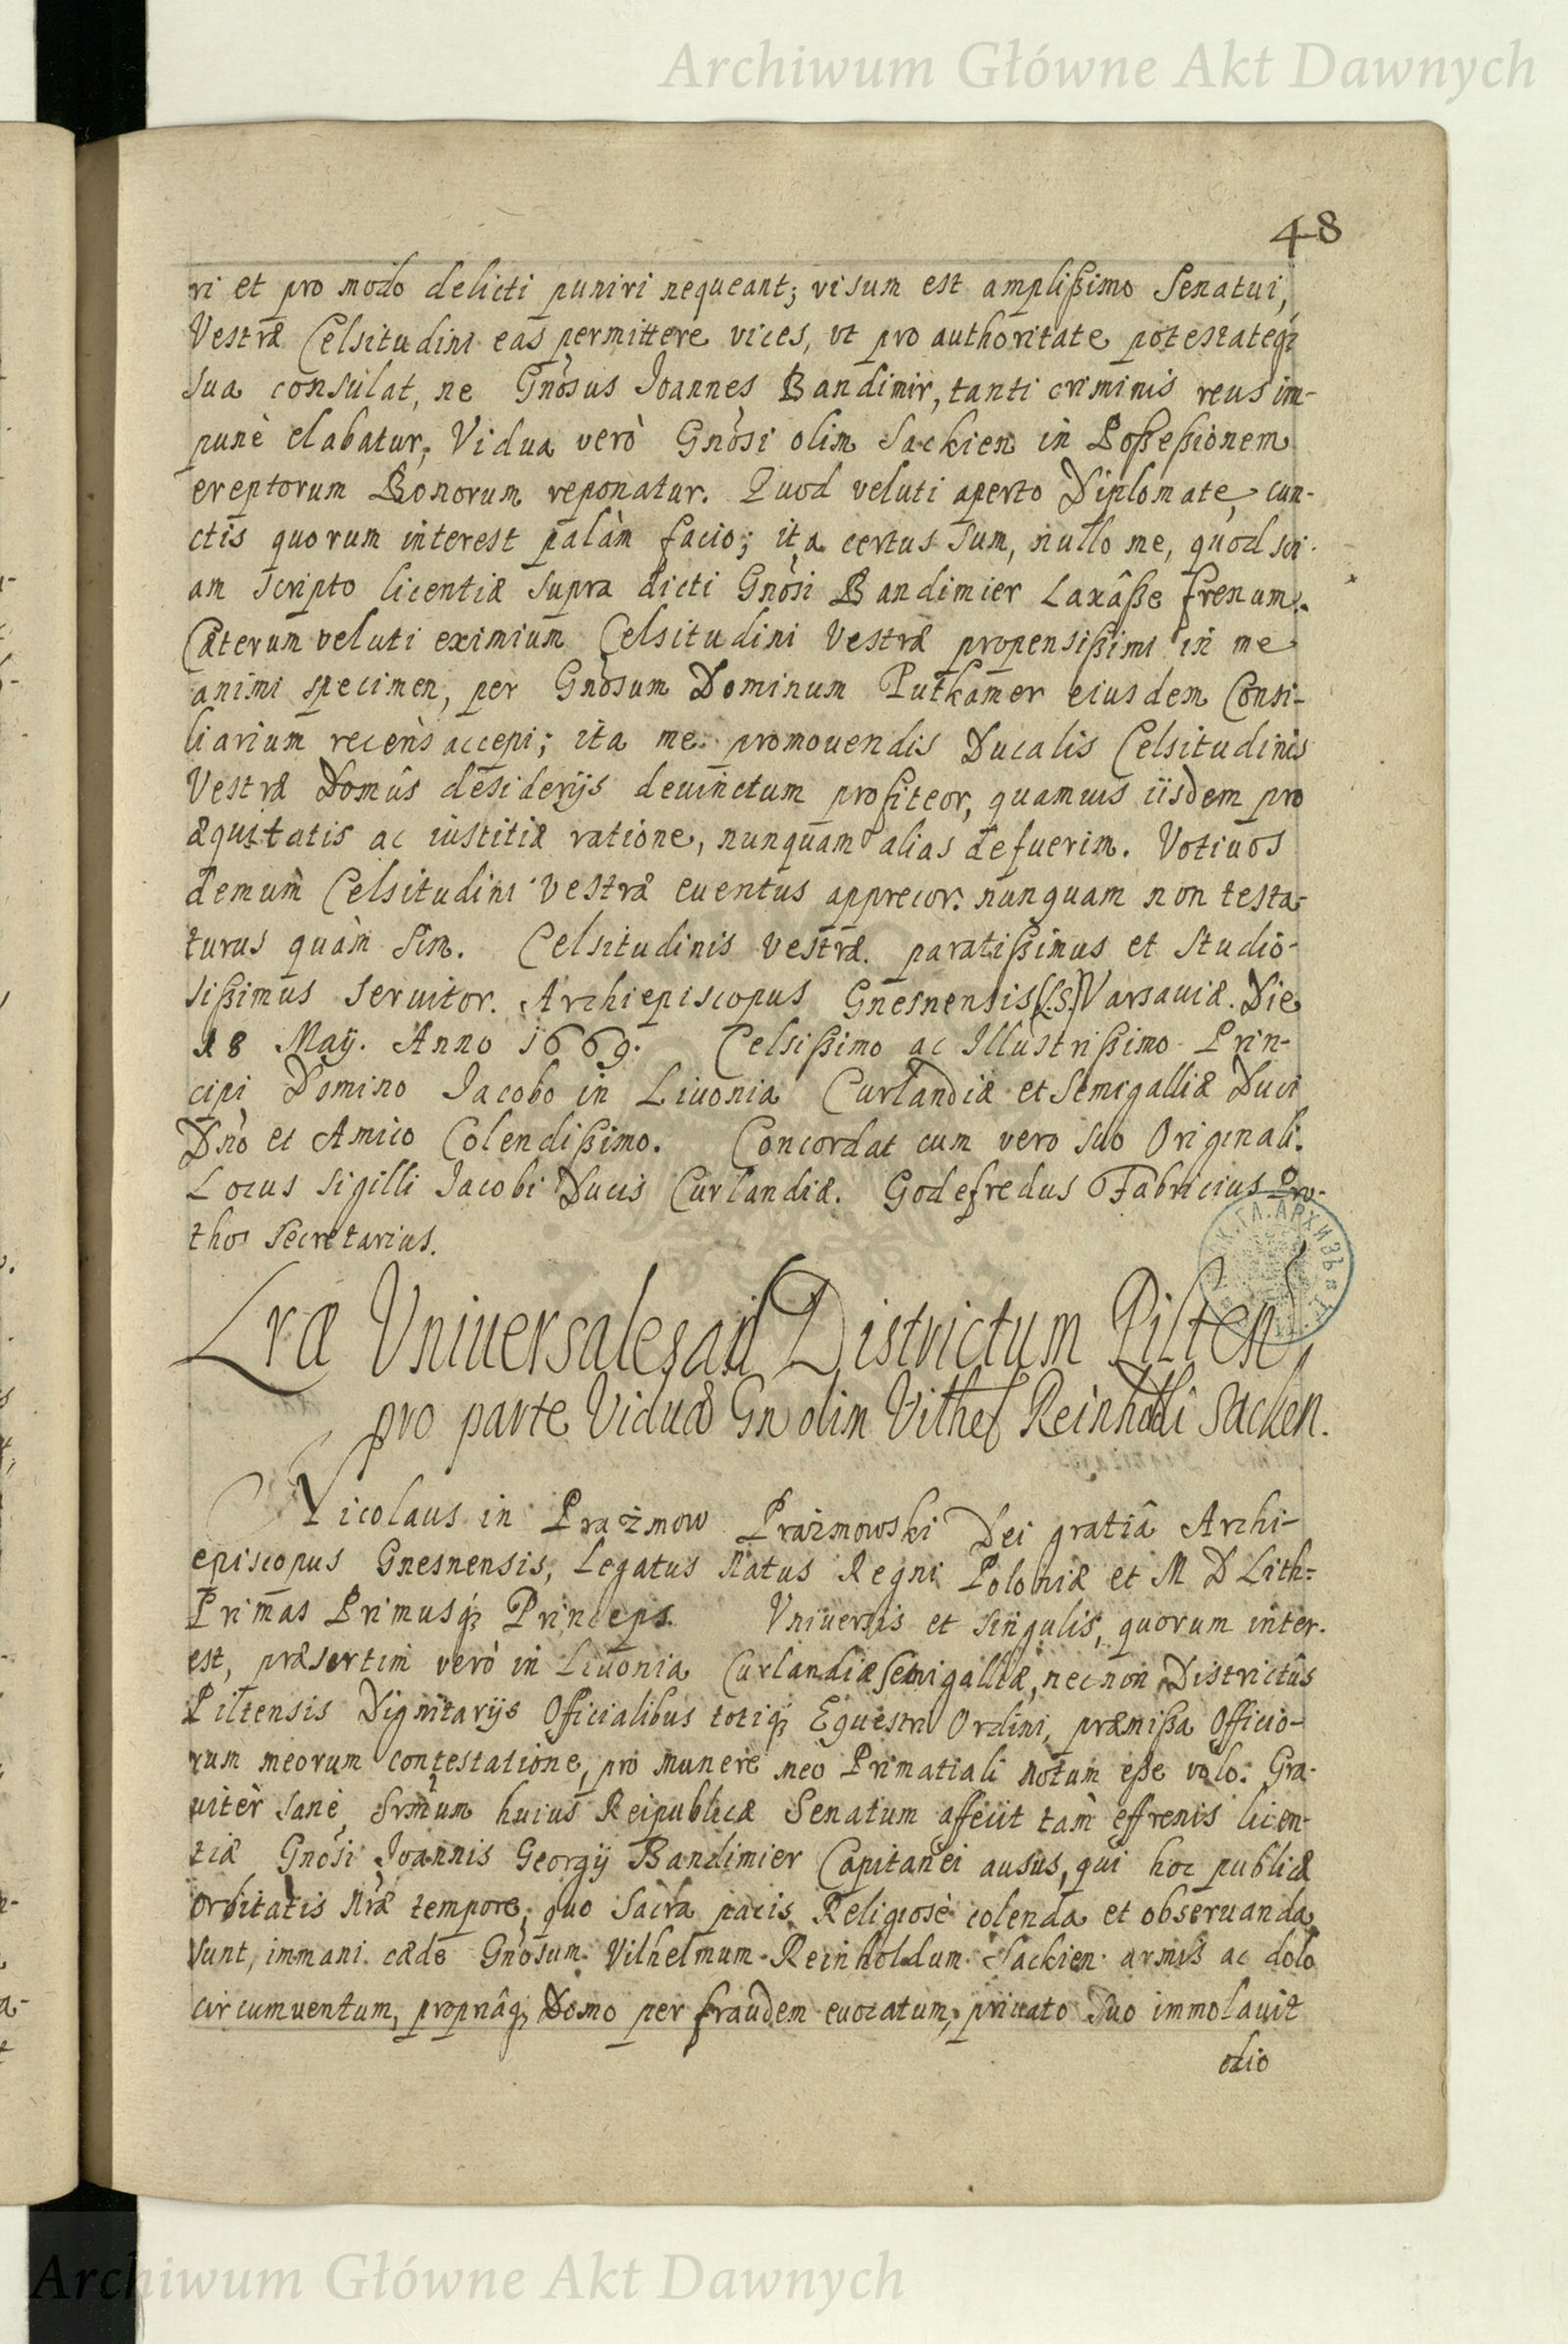 Archiwum Główne Akt Dawnych
48
ri et pro modo delicti puniri nequeant; visum est amplißimo Senatui,
Vestræ Celsitudini eas permittere vices, vt pro authoritate potestateq;
sua consulat, ne Gnosus Joannes Bandimir, tanti criminis reus im-
punè elabatur; Vidua verò Gnosi olim Sackien in Poßeßionem
ereptorum Bonorum reponatur. Quod veluti aperto Diplomate, cun-
ctis quorum interest palàm facio; ita certus sum, nullo me, quod sci-
am scripto licentiæ supra dicti Gnosi Bandimier Laxâße frenum.
Cæterum veluti eximium Celsitudini Vestræ propensißimi in me
animi specimen, per Gnosum Dominum Putkamer eiusdem Consi-
liarium recens accepi; ita me promouendis Ducalis Celsitudinis
Vestræ Domûs desiderijs deuinctum profiteor, quamuis iisdem pro
æquitatis ac iustitiæ ratione, nunquam alias defuerim. Votiuos
demum Celsitudini vestræ euentus apprecor: nunquam non testa-
turus quàm sim. Celsitudinis vestræ. paratißimus et studio-
sißimus seruitor. Archiepiscopus Gnesnensis (L.S.) Varsauiæ. Die
18 Maÿ. Anno 1669. Celsißimo ac Illustrißimo Prin-
cipi Domino Jacobo in Liuonia Curlandiæ et Semigalliæ Duci
Dno et Amico Colendißimo. Concordat cum vero suo Originali.
Locus sigilli Jacobi Ducis Curlandiæ. Godefredus Fabricius Pro-
tho Secretarius.
Lræ Vniuersales ad Districtum Pilten
pro parte Viduæ Gn olim Vilhel Reinholdi Sacken.
Nicolaus in Prażmow Prażmowski Dei gratiâ Archi-
episcopus Gnesnensis, Legatus Natus Regni Poloniæ et M D Lith:
Primas Primusq; Princeps. Vniuersis et singulis, quorum inter-
est, præsertim verò in Liuonia Curlandiæ Semigalliæ, necnon Districtûs
Piltensis Dignitarijs Officialibus totiq; Equestri Ordini, præmißa Officio-
rum meorum contestatione, pro munere meo Primatiali notum eße volo. Gra-
uitèr sanè, huius Reipublicæ Senatum affecit tam effrenis licen-
tiæ Gnosi Joannis Georgÿ Bandimier Capitanei ausus, qui hoc publicæ
orbitatis nræ tempore; quo Sacra pacis Religiosè colenda et obseruanda
sunt, immani cæde Gnosum Vilhelmum Reinholdum Sackien armis ac dolo
circumuentum, propriâq; Domo per fraudem euocatum, priuato suo immolauit
odio
Archiwum Główne Akt Dawnych